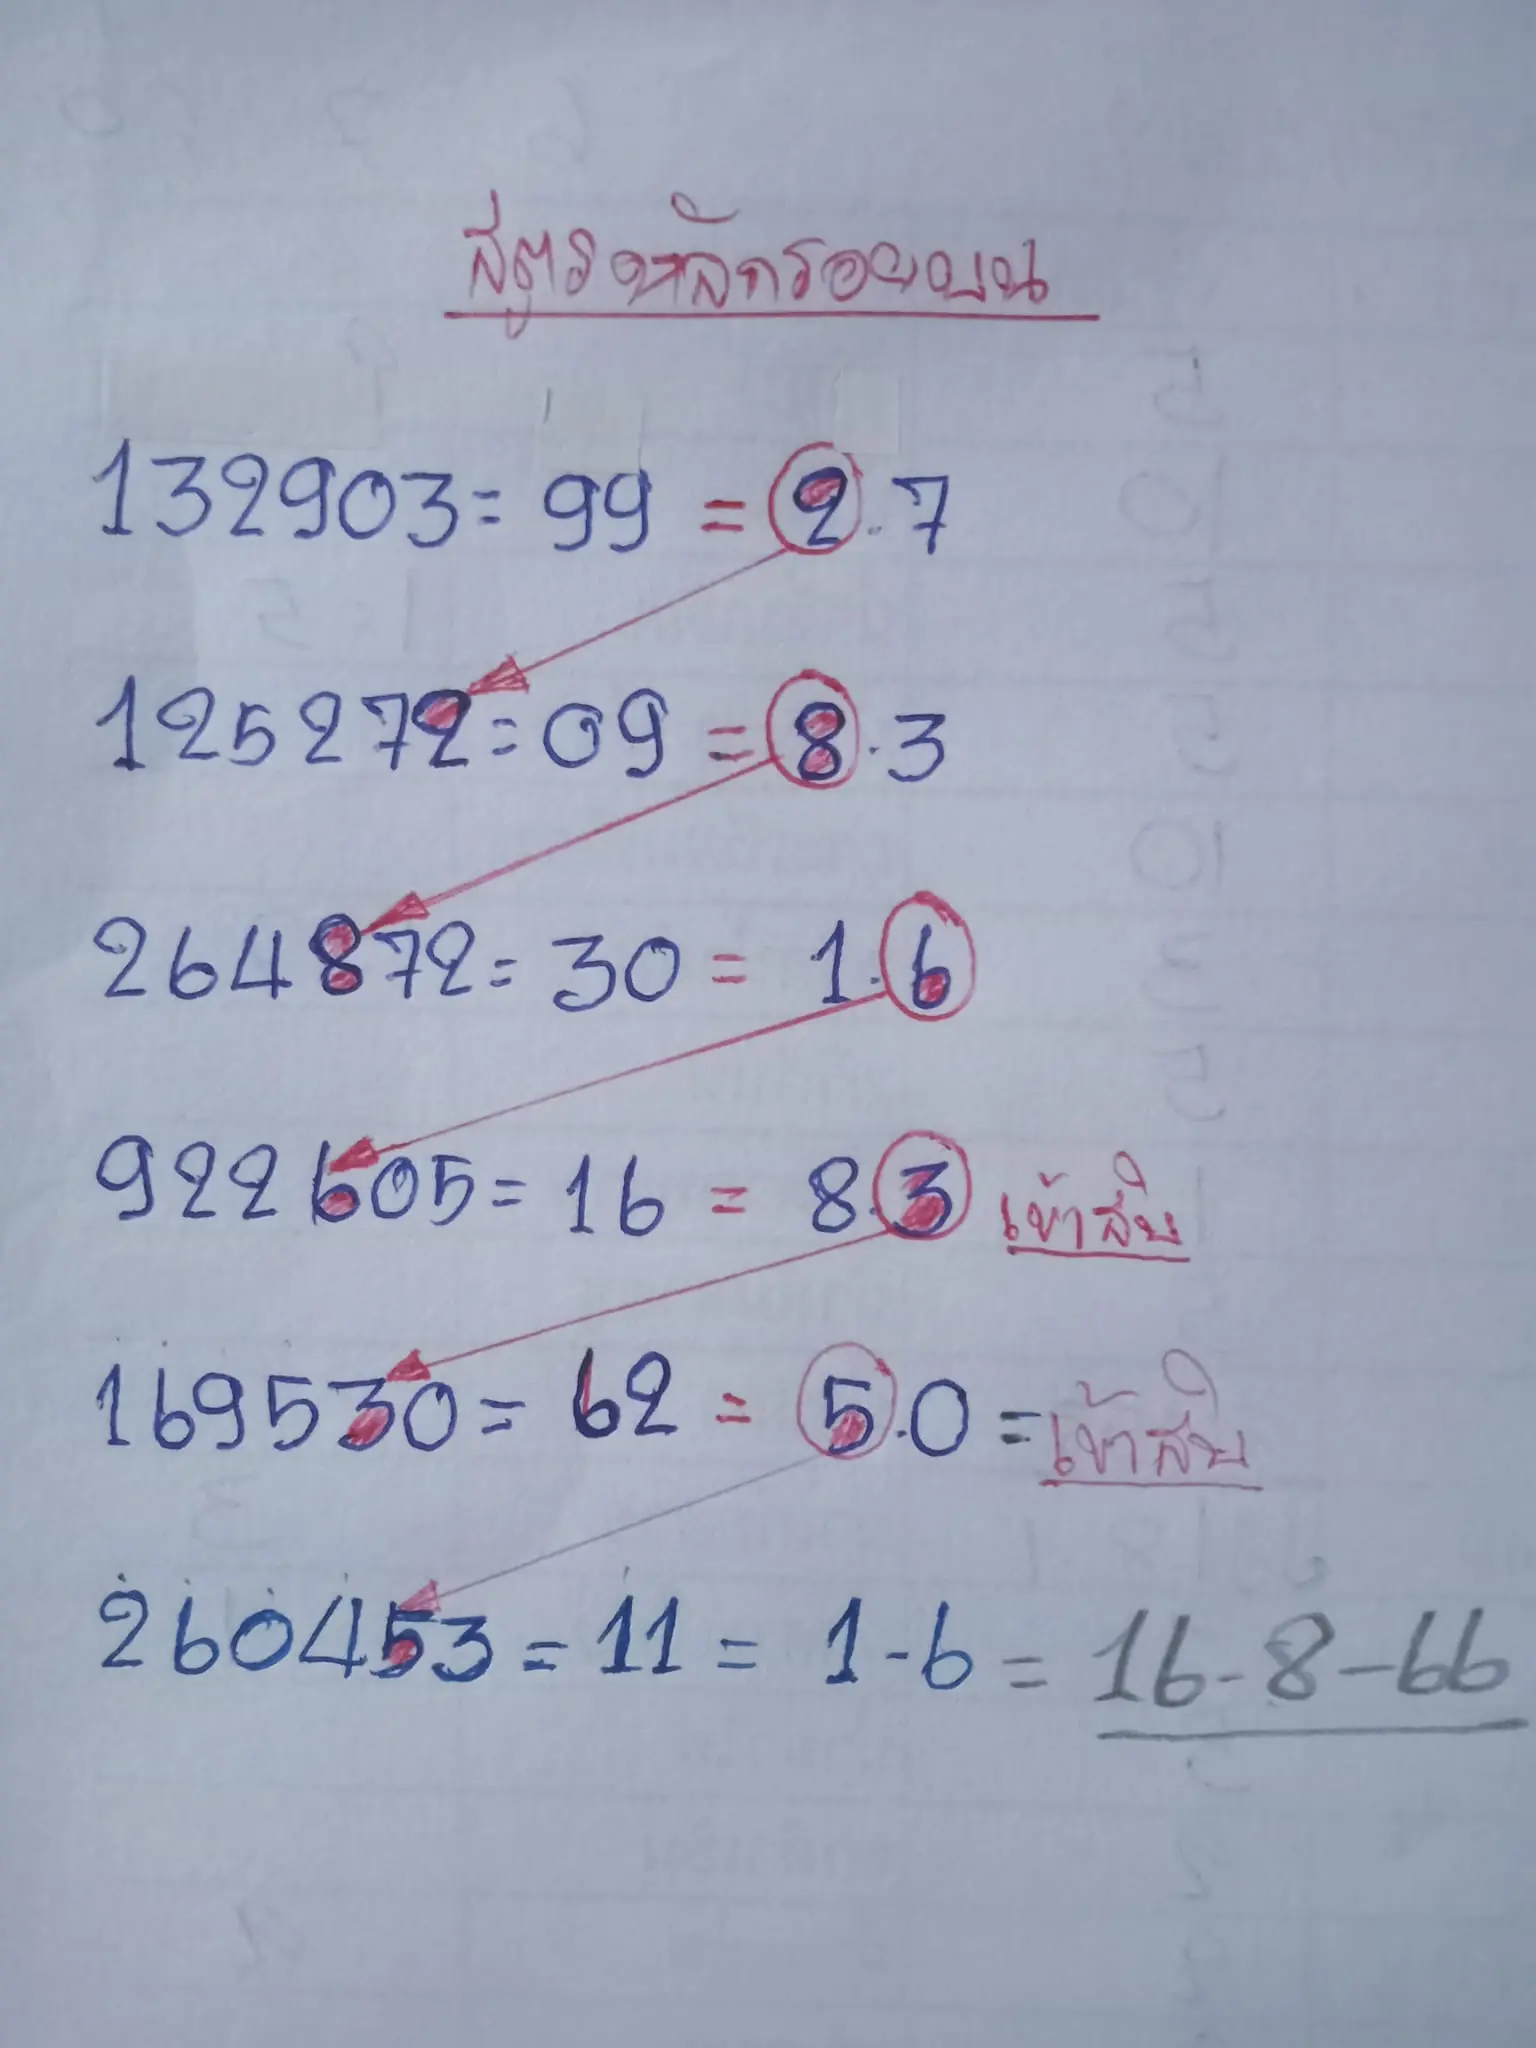 สูตรหลักรอยบน
132903 = 99 = 2.7
125272 = 09 = 8.3
264872 = 30 = 1.6
922605 = 16 = 8.3 เข้าสิบ
169530 = 62 = 5.0 = เข้าสิบ
260453 = 11 = 1-6 = 16-8-66